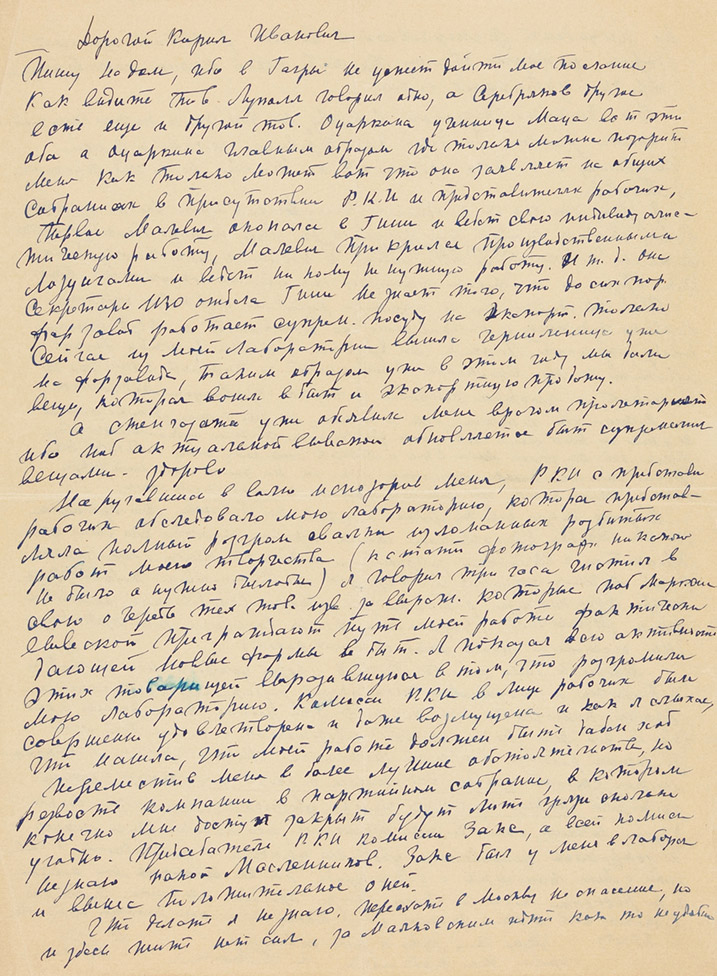 Дорогой Кирил Иванович
Пишу на дом, ибо в Гагры не успеет дойти мое послание
как видите тов. Луппол говорил одно, а Серебряков другое
есть еще и другой тов. Оцаркина ученица Маца вот эти
оба а Оцаркина главным образом где только можно позорит
меня как только может вот что она заявляет на общих
собраниях в присутствии Р.К.И и представителях рабочих,
Первое Малевич окопался в Гиии и ведет свою индивидуалис-
тическую работу, Малевич прикрылся производственными
лозунгами и ведет ни кому не нужную работу. И т. д. она
секретарь ИЗО отдела Гиии не знает того, что до сих пор
фар завод работает супрем. посуду на экспорт. только
сейчас из моей лаборатории вышла чернильница уже
на фарзаводе, таким образом уже в этом году мы дали
вещь, которая вошла в быт и экспортную продажу.
А стенгазета уже объявила меня врагом пролетариата
ибо под актуальной вывеской обновляется быт супрематич
вещами. здорово
Наругавшись в волю испозорив меня, РКИ с представи
рабочих обследовало мою лабораторию, которая представ-
ляла полный разгром свалки изломанных разбитых
работ моего творчества (кстати фотографа никакого
не было а нужно было бы) Я говорил три часа чистил в
свою очередь тех тов. изв. за выраж. которые под марксис
вывеской преграждают путь моей работе фактически
дающей новые формы в быт. Я показал всю активность
этих товарищей выразившуюся в том, что разгромили
мою лабораторию. Комиссия РКИ в лице рабочих были
совершенно удовлетворена и даже возмущена и как я слыхал,
что нашла, что моей работе должен быть дабы ход
переместив меня в более лучшие обстоятельства, но
резвость компании в партийном собрании, в котором
конечно мне доступ закрыт будут лить грязи сколько
угодно. Председатель РКИ комиссии Закс, а всей комисс
не знаю какой Масленников. Закс был у меня в лабора
и вынес положительное о ней.
Что делать я не знаю. переехать в Москву не спасение, но
и здесь жить нет сил, за Маяковским идти как то неудобно